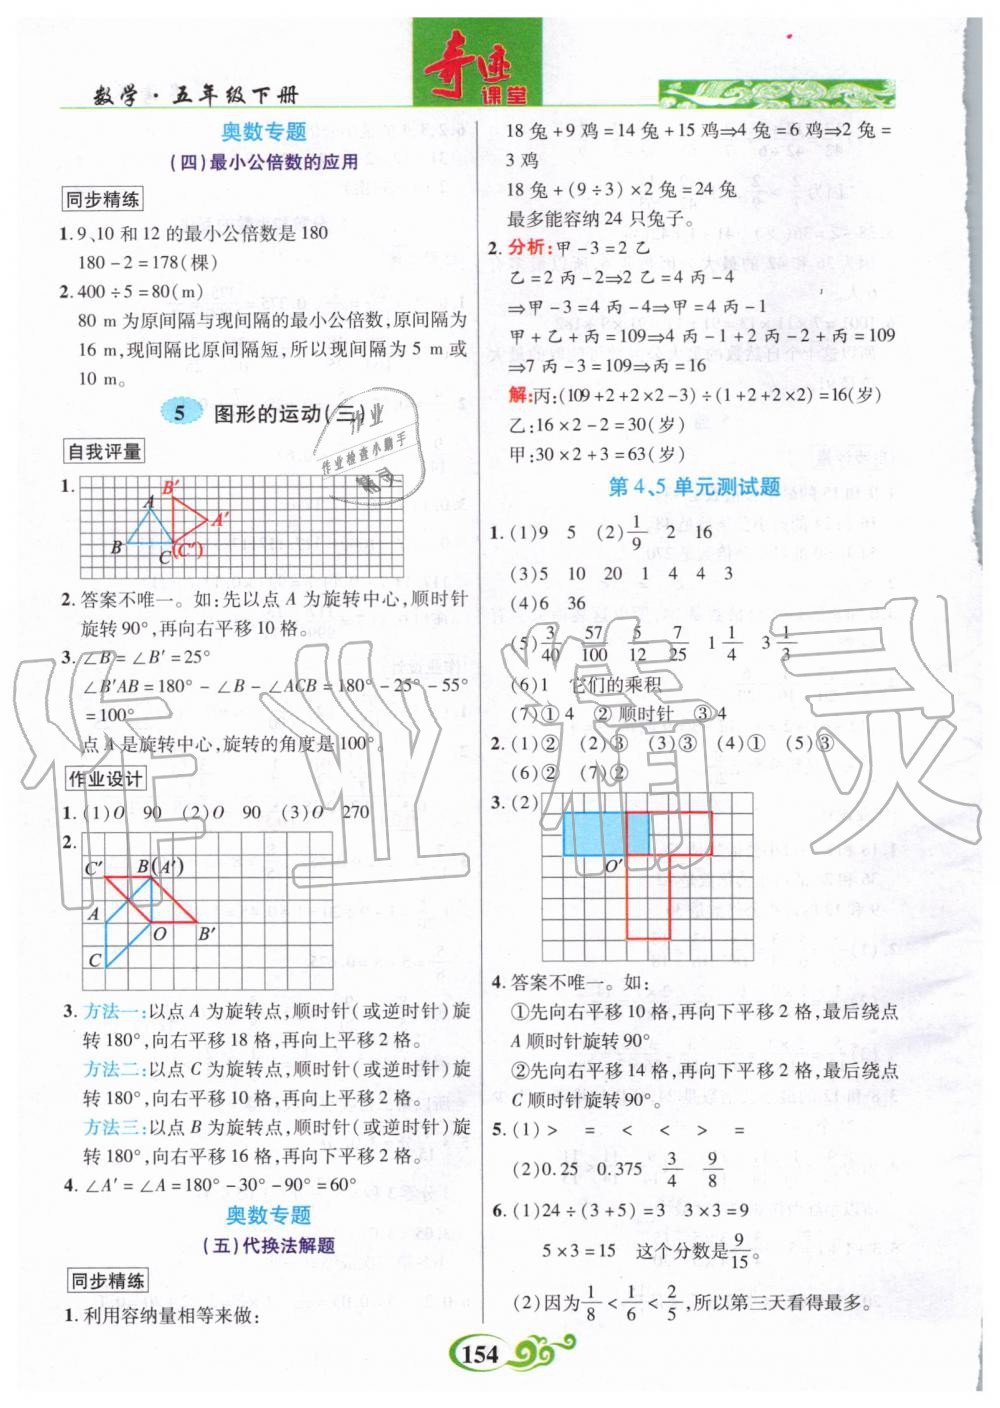 数学·五年级下册
奇迹
课堂
奥数专题
(四)最小公倍数的应用
同步精练
1. 9、10 和 12 的最小公倍数是 180
180－2＝178(棵)
2. 400÷5＝80(m)
80 m 为原间隔与现间隔的最小公倍数,原间隔为
16 m,现间隔比原间隔短,所以现间隔为 5 m 或
10 m。
5 图形的运动(三)
自我评量
1.
B′
A
A′
B
C
(C′)
2. 答案不唯一。如:先以点 A 为旋转中心,顺时针
旋转 90°,再向右平移 10 格。
3. ∠B＝∠B′＝25°
∠B′AB＝180°－∠B－∠ACB＝180°－25°－55°
＝100°
点 A 是旋转中心,旋转的角度是 100°。
作业设计
1. (1)O 90 (2)O 90 (3)O 270
2.
C′ B(A′)
A
O B′
C
3. 方法一:以点 A 为旋转点,顺时针(或逆时针)旋
转 180°,向右平移 18 格,再向上平移 2 格。
方法二:以点 C 为旋转点,顺时针(或逆时针)旋
转 180°,向右平移 10 格,再向上平移 2 格。
方法三:以点 B 为旋转点,顺时针(或逆时针)旋
转 180°,向右平移 16 格,再向下平移 2 格。
4. ∠A′＝∠A＝180°－30°－90°＝60°
奥数专题
(五)代换法解题
同步精练
1. 利用容纳量相等来做:
18 兔＋9 鸡＝14 兔＋15 鸡⇒4 兔＝6 鸡⇒2 兔＝
3 鸡
18 兔＋(9÷3)×2 兔＝24 兔
最多能容纳 24 只兔子。
2. 分析:甲－3＝2 乙
乙＝2 丙－2⇒2 乙＝4 丙－4
⇒甲－3＝4 丙－4⇒甲＝4 丙－1
甲＋乙＋丙＝109⇒4 丙－1＋2 丙－2＋丙＝109
⇒7 丙－3＝109⇒丙＝16
解:丙:(109＋2＋2×2－3)÷(1＋2＋2×2)＝16(岁)
乙:16×2－2＝30(岁)
甲:30×2＋3＝63(岁)
第 4、5 单元测试题
1. (1)9 5 (2)1/9 2 16
(3)5 10 20 1 4 4 3
(4)6 36
(5)3/40 57/100 5/12 7/25 1 1/4 3 1/3
(6)1 它们的乘积
(7)①4 ②顺时针 ③4
2. (1)② (2)③ (3)③ (4)① (5)③
(6)② (7)②
3. (2)
O′
4. 答案不唯一。如:
①先向右平移 10 格,再向下平移 2 格,最后绕点
A 顺时针旋转 90°。
②先向右平移 14 格,再向下平移 2 格,最后绕点
C 顺时针旋转 90°。
5. (1)＞ ＝ ＜ ＜ ＞ ＝
(2)0.25 0.375 3/4 9/8
6. (1)24÷(3＋5)＝3 3×3＝9
5×3＝15 这个分数是 9/15。
(2)因为 1/8＜1/6＜2/5,所以第三天看得最多。
154
作业
作业检查小助手
精灵
作业精灵